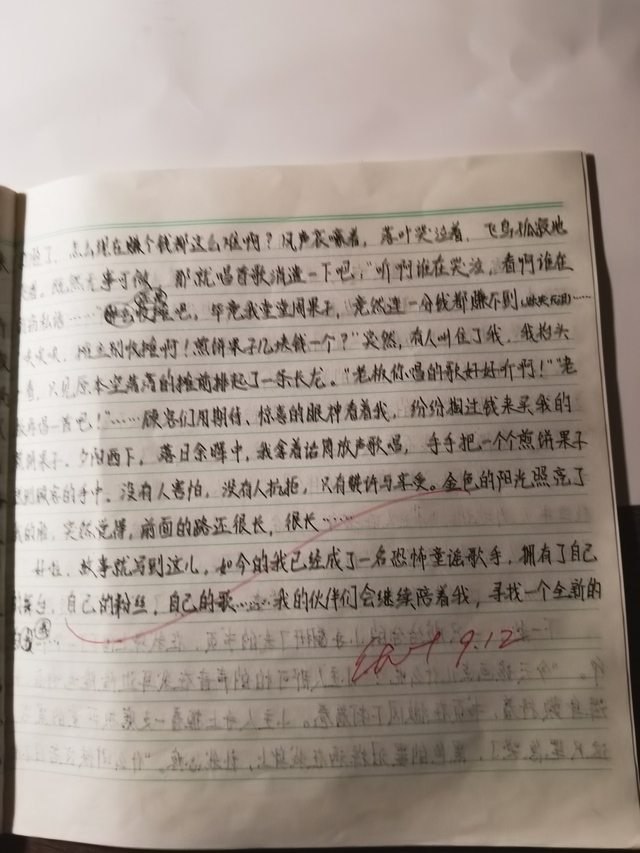 了，怎么现在赚个钱都这么难啊？风声哀嚎着，落叶哭泣着，飞鸟孤寂地
着。既然无事可做，那就唱首歌消遣一下吧，“听啊谁在哭泣，看啊谁在
私语……吧，毕竟我堂堂闹果子，竟然连一分钱都赚不到……
吱吱吱，摊主别收摊啊！煎饼果子几块钱一个？”突然，有人叫住了我，我抬头
看，只见原本空荡荡的摊前排起了一条长龙。“老板你唱的歌好好听啊！”“老
再唱一首吧！”……顾客们用期待、惊喜的眼神看着我，纷纷掏过钱来买我的
饼果子。夕阳西下，落日余晖中，我拿着话筒放声歌唱，手手把一个个煎饼果子
到顾客的手中。没有人害怕，没有人抗拒，只有赞许与享受。金色的阳光照亮了
我的脸，突然觉得，前面的路还很长，很长……
好啦，故事就写到这儿，如今的我已经成了一名恐怖童谣歌手，拥有了自己
舞台，自己的粉丝，自己的歌……我的伙伴们会继续陪着我，寻找一个全新的
9.12